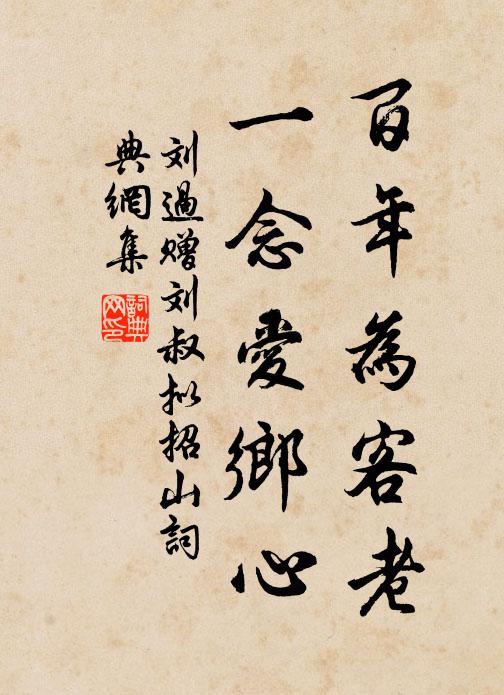 百年為客老
一念愛鄉心
刘過赠刘叔拟招山詞
典網集
詞典网印